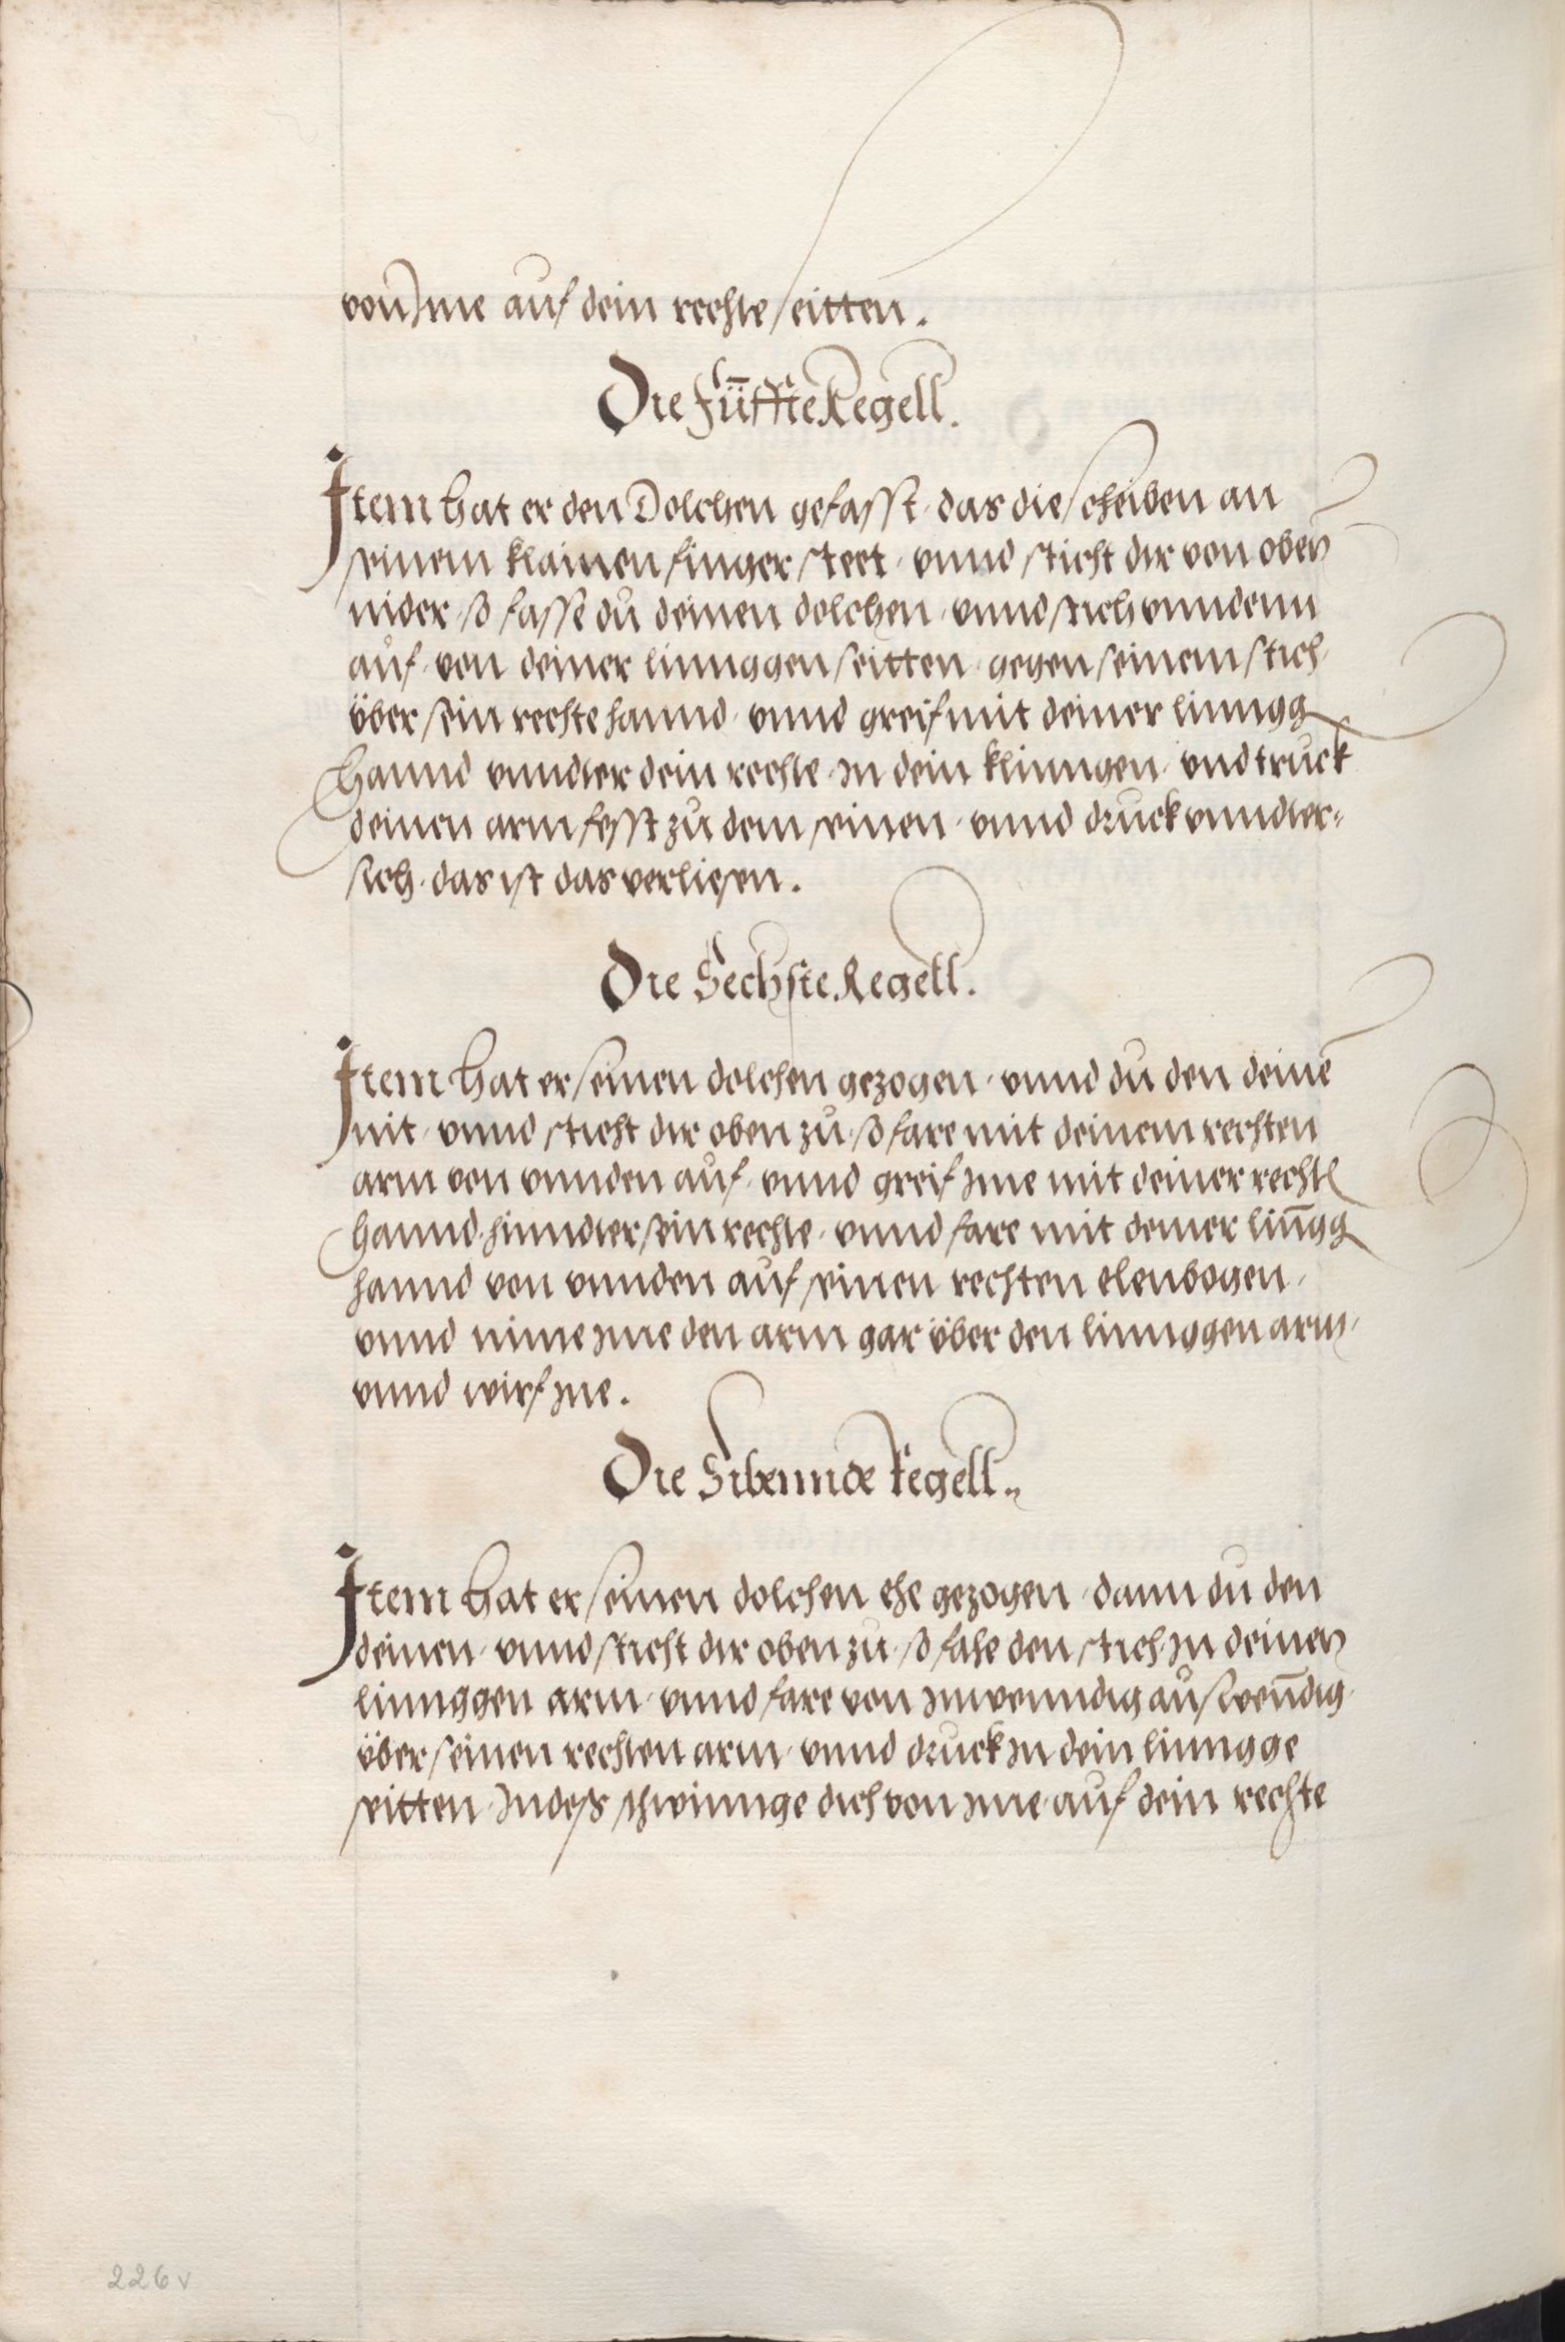 von Jme auf dein rechte seitten.
Die Fün̄ffte Regell.
Item hat er den Dolchen gefasst, das die scheiben an
seinem klainen finger steet, vnnd sticht dir von oben
nider, so fasse du deinen dolchen, vnnd stich vnnden
auf, von deiner linnggen seitten, gegen seinem stich,
über sein rechte hannd, vnnd greif mit deiner linngg
hannd vnndter dein rechte, in dein klinngen, vnd truck
deinen arm fesst zu dem seinen, vnnd druck vnndter=
sich, das ist das verliesen.
Die Sechste Regell.
Item hat er seinen dolchen gezogen, vnnd du den deinē
nit, vnnd sticht dir oben zu, so fare mit deinem rechten
arm von vnnden auf, vnnd greif jme mit deiner rechtn
hannd, hinndter sein rechte, vnnd fare mit deiner lin̄gg
hannd von vnnden auf seinen rechten elenbogen,
vnnd nime jme den arm gar über den linnggen arm,
vnnd wirf jne.
Die Sibennde Regell.
Item hat er seinen dolchen ehe gezogen, dann du den
deinen, vnnd sticht dir oben zu, so fahe den stich, in deinen
linnggen arm, vnnd fare von jnwenndig auswen̄dig,
über seinen rechten arm, vnnd druck in dein linngge
seitten, Indeß schwinnge dich von jme, auf dein rechte
226v